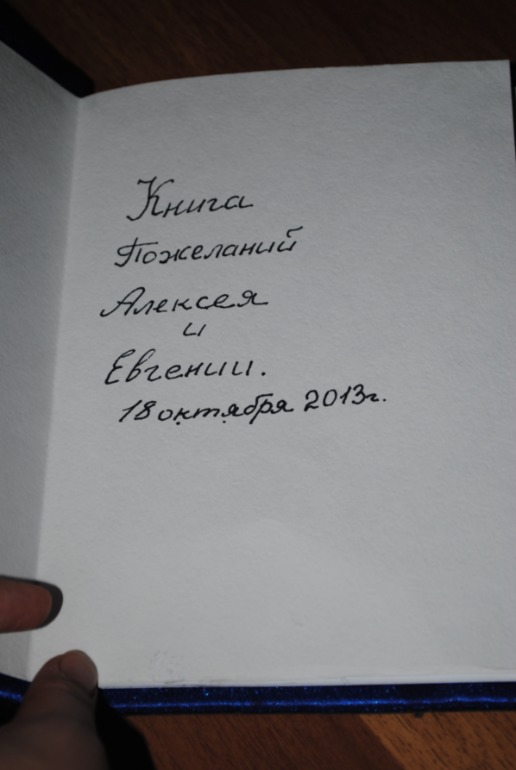 Книга
Пожеланий
Алексея
и
Евгении.
18 октября 2013г.